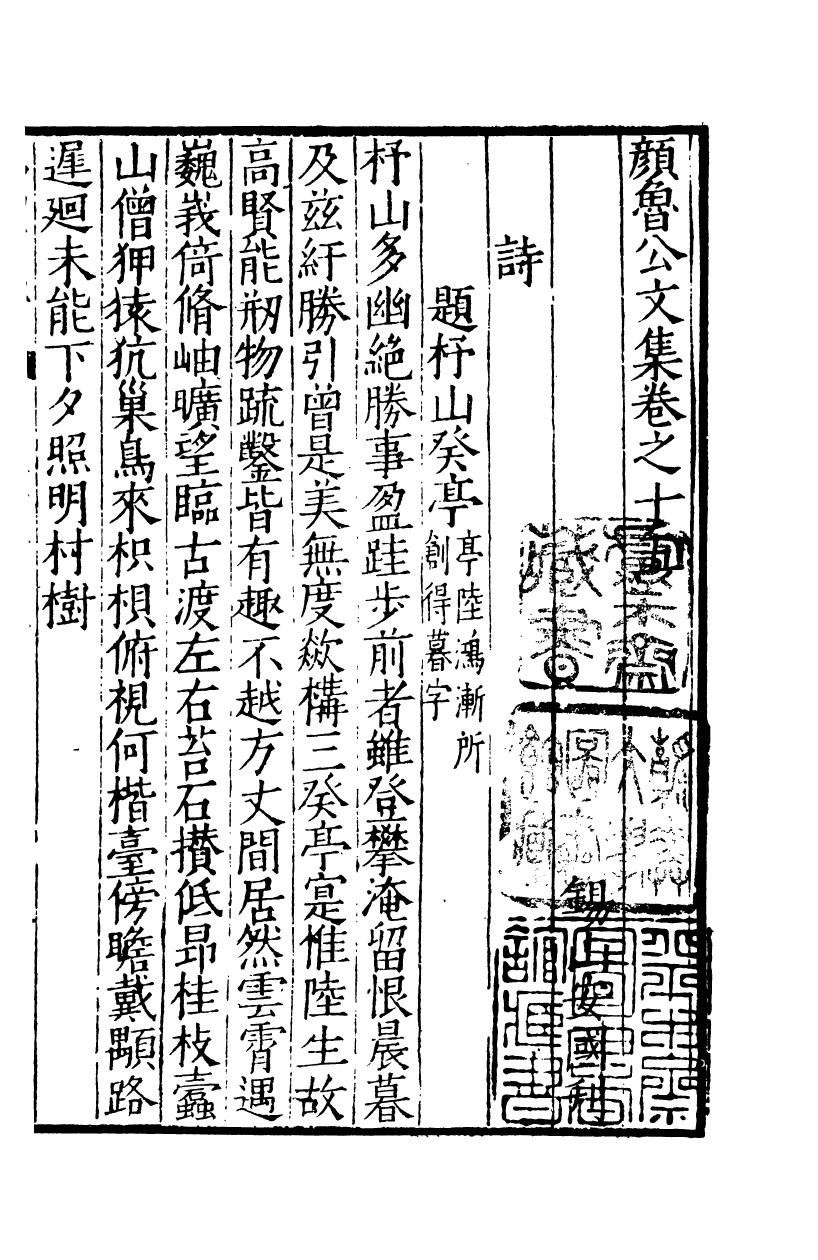 顔魯公文集卷之十
錫山安國刊
詩
題杼山癸亭亭陸鴻漸所創得暮字
杼山多幽絶勝事盈跬步前者雖登攀淹留恨晨暮
及兹紆勝引曾是美無度歘構三癸亭寔惟陸生故
高賢能刱物疏鑿皆有趣不越方丈間居然雲霄遇
巍峩倚脩岫曠望臨古渡左右苔石攢低昻桂枝蠧
山僧狎猿狖巢鳥來枳椇俯視何楷臺傍瞻戴顒路
遲廻未能下夕照明村樹